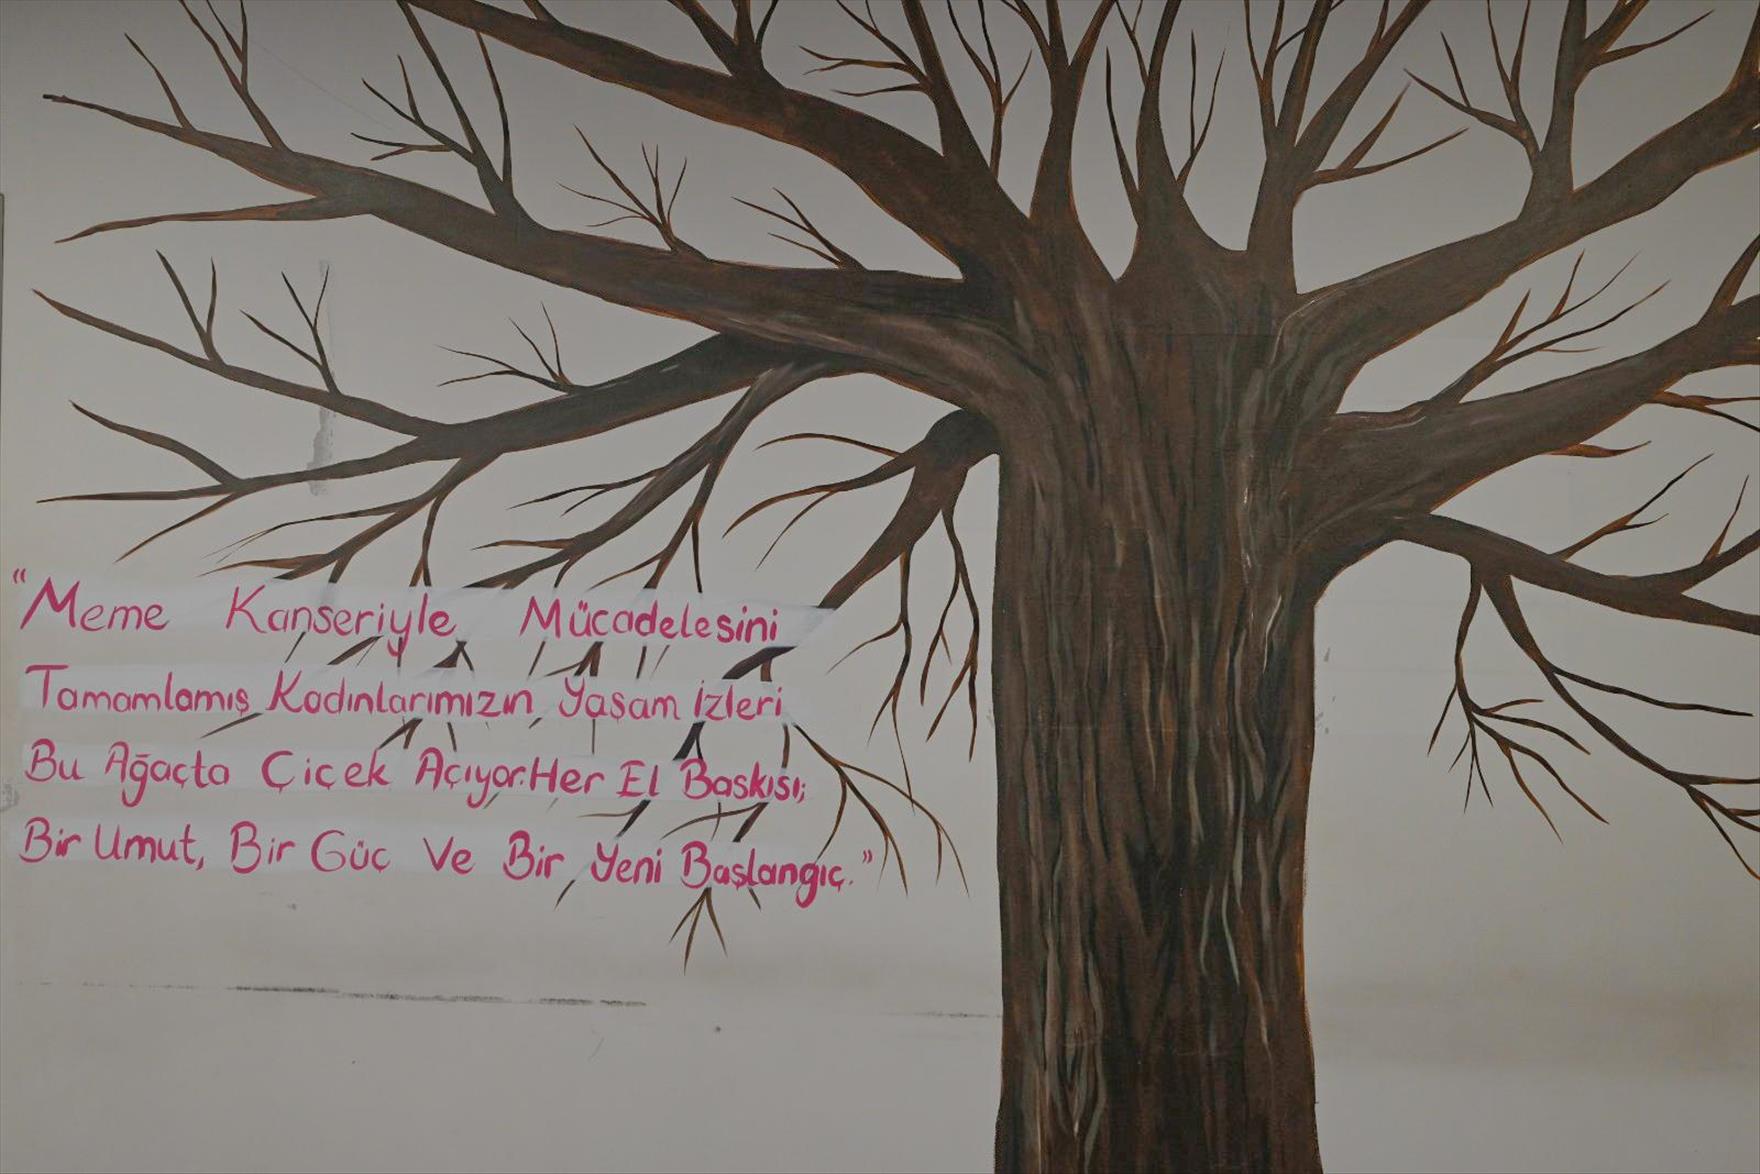 "Meme Kanseriyle Mücadelesini
Tamamlamış Kadınlarımızın Yaşam İzleri
Bu Ağaçta Çiçek Açıyor. Her El Baskısı;
Bir Umut, Bir Güç Ve Bir Yeni Başlangıç."